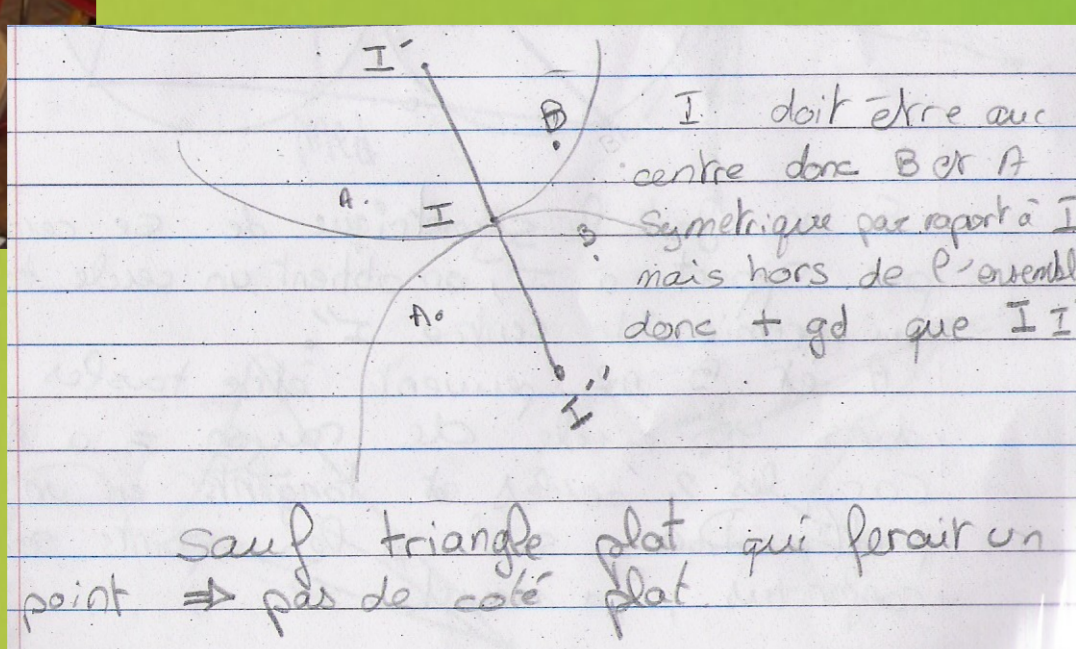 I'
B
I doit être au
centre donc B et A
A.
I
Symetrique par raport à I
B
mais hors de l'ensembl
A.
donc + gd que II
I''
Sauf triangle plat qui ferait un
point ⇒ pas de coté plat.